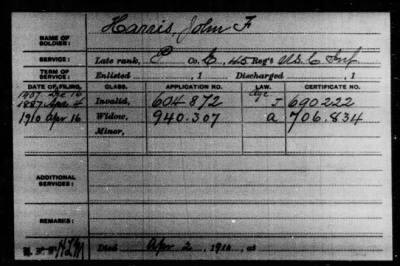 NAME OF SOLDIER: Harris, John F
SERVICE: Late rank, P Co. E, 45 Reg't U.S.C Inf
TERM OF SERVICE: Enlisted , 1 Discharged , 1
DATE OF FILING. CLASS. APPLICATION NO. LAW. CERTIFICATE NO.
1907 Dec 16 Age
1887 Apr 4 Invalid, 604 872 J 690222
1910 Apr 16 Widow, 940.307 a 706.834
Minor,
ADDITIONAL SERVICES:
REMARKS:
Died Apr 2, 1910, at